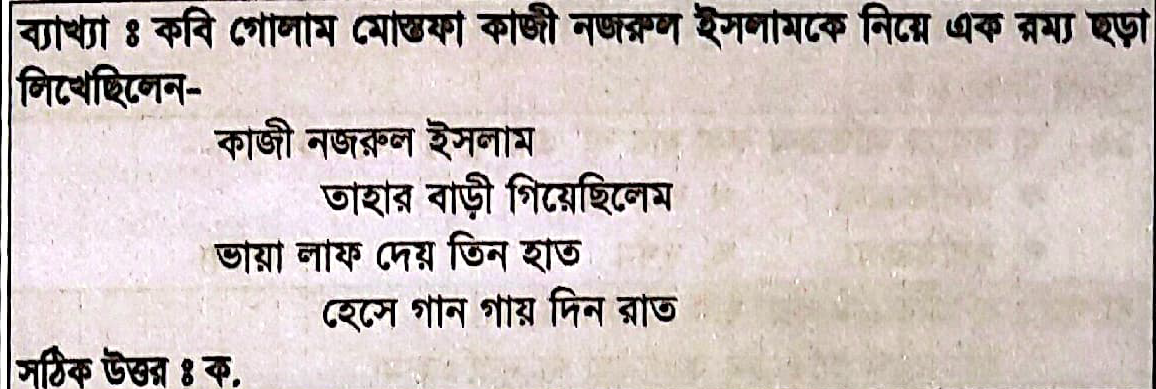 ব্যাখ্যা ঃ কবি গোলাম মোস্তফা কাজী নজরুল ইসলামকে নিয়ে এক রম্য ছড়া
লিখেছিলেন-
কাজী নজরুল ইসলাম
তাহার বাড়ী গিয়েছিলেম
ভায়া লাফ দেয় তিন হাত
হেসে গান গায় দিন রাত
সঠিক উত্তর ঃ ক.